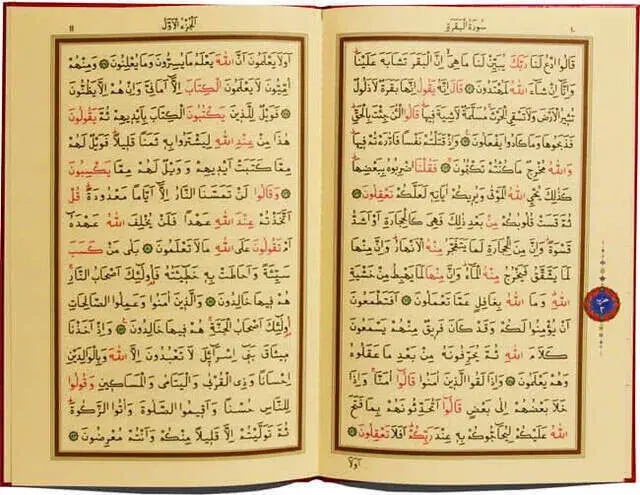 سُورَةُ الْبَقَرَةِ
قَالُوا ادْعُ لَنَا رَبَّكَ يُبَيِّنْ لَنَا مَا هِيَ إِنَّ الْبَقَرَ تَشَابَهَ عَلَيْنَا
وَإِنَّا إِنْ شَاءَ اللّٰهُ لَمُهْتَدُونَ قَالَ إِنَّهُ يَقُولُ إِنَّهَا بَقَرَةٌ لَا ذَلُولٌ
تُثِيرُ الْأَرْضَ وَلَا تَسْقِي الْحَرْثَ مُسَلَّمَةٌ لَا شِيَةَ فِيهَا قَالُوا الْآنَ جِئْتَ بِالْحَقِّ
فَذَبَحُوهَا وَمَا كَادُوا يَفْعَلُونَ وَإِذْ قَتَلْتُمْ نَفْسًا فَادَّارَأْتُمْ فِيهَا
وَاللّٰهُ مُخْرِجٌ مَا كُنْتُمْ تَكْتُمُونَ فَقُلْنَا اضْرِبُوهُ بِبَعْضِهَا
كَذٰلِكَ يُحْيِي اللّٰهُ الْمَوْتٰى وَيُرِيكُمْ آيَاتِهِ لَعَلَّكُمْ تَعْقِلُونَ
ثُمَّ قَسَتْ قُلُوبُكُمْ مِنْ بَعْدِ ذٰلِكَ فَهِيَ كَالْحِجَارَةِ أَوْ أَشَدُّ
قَسْوَةً وَإِنَّ مِنَ الْحِجَارَةِ لَمَا يَتَفَجَّرُ مِنْهُ الْأَنْهَارُ وَإِنَّ مِنْهَا
لَمَا يَشَّقَّقُ فَيَخْرُجُ مِنْهُ الْمَاءُ وَإِنَّ مِنْهَا لَمَا يَهْبِطُ مِنْ خَشْيَةِ
اللّٰهِ وَمَا اللّٰهُ بِغَافِلٍ عَمَّا تَعْمَلُونَ أَفَتَطْمَعُونَ
أَنْ يُؤْمِنُوا لَكُمْ وَقَدْ كَانَ فَرِيقٌ مِنْهُمْ يَسْمَعُونَ
كَلَامَ اللّٰهِ ثُمَّ يُحَرِّفُونَهُ مِنْ بَعْدِ مَا عَقَلُوهُ
وَهُمْ يَعْلَمُونَ وَإِذَا لَقُوا الَّذِينَ آمَنُوا قَالُوا آمَنَّا وَإِذَا
خَلَا بَعْضُهُمْ إِلٰى بَعْضٍ قَالُوا أَتُحَدِّثُونَهُمْ بِمَا فَتَحَ
اللّٰهُ عَلَيْكُمْ لِيُحَاجُّوكُمْ بِهِ عِنْدَ رَبِّكُمْ أَفَلَا تَعْقِلُونَ
أَوَلَا
الْجُزْءُ الْأَوَّلُ
١١
أَوَلَا يَعْلَمُونَ أَنَّ اللّٰهَ يَعْلَمُ مَا يُسِرُّونَ وَمَا يُعْلِنُونَ وَمِنْهُمْ
أُمِّيُّونَ لَا يَعْلَمُونَ الْكِتَابَ إِلَّا أَمَانِيَّ وَإِنْ هُمْ إِلَّا يَظُنُّونَ
فَوَيْلٌ لِلَّذِينَ يَكْتُبُونَ الْكِتَابَ بِأَيْدِيهِمْ ثُمَّ يَقُولُونَ
هٰذَا مِنْ عِنْدِ اللّٰهِ لِيَشْتَرُوا بِهِ ثَمَنًا قَلِيلًا فَوَيْلٌ لَهُمْ
مِمَّا كَتَبَتْ أَيْدِيهِمْ وَوَيْلٌ لَهُمْ مِمَّا يَكْسِبُونَ
وَقَالُوا لَنْ تَمَسَّنَا النَّارُ إِلَّا أَيَّامًا مَعْدُودَةً قُلْ
أَتَّخَذْتُمْ عِنْدَ اللّٰهِ عَهْدًا فَلَنْ يُخْلِفَ اللّٰهُ عَهْدَهُ
أَمْ تَقُولُونَ عَلَى اللّٰهِ مَا لَا تَعْلَمُونَ بَلٰى مَنْ كَسَبَ
سَيِّئَةً وَأَحَاطَتْ بِهِ خَطِيئَتُهُ فَأُولٰئِكَ أَصْحَابُ النَّارِ
هُمْ فِيهَا خَالِدُونَ وَالَّذِينَ آمَنُوا وَعَمِلُوا الصَّالِحَاتِ
أُولٰئِكَ أَصْحَابُ الْجَنَّةِ هُمْ فِيهَا خَالِدُونَ وَإِذْ أَخَذْنَا
مِيثَاقَ بَنِي إِسْرَائِيلَ لَا تَعْبُدُونَ إِلَّا اللّٰهَ وَبِالْوَالِدَيْنِ
إِحْسَانًا وَذِي الْقُرْبٰى وَالْيَتَامٰى وَالْمَسَاكِينِ وَقُولُوا
لِلنَّاسِ حُسْنًا وَأَقِيمُوا الصَّلٰوةَ وَآتُوا الزَّكٰوةَ
ثُمَّ تَوَلَّيْتُمْ إِلَّا قَلِيلًا مِنْكُمْ وَأَنْتُمْ مُعْرِضُونَ